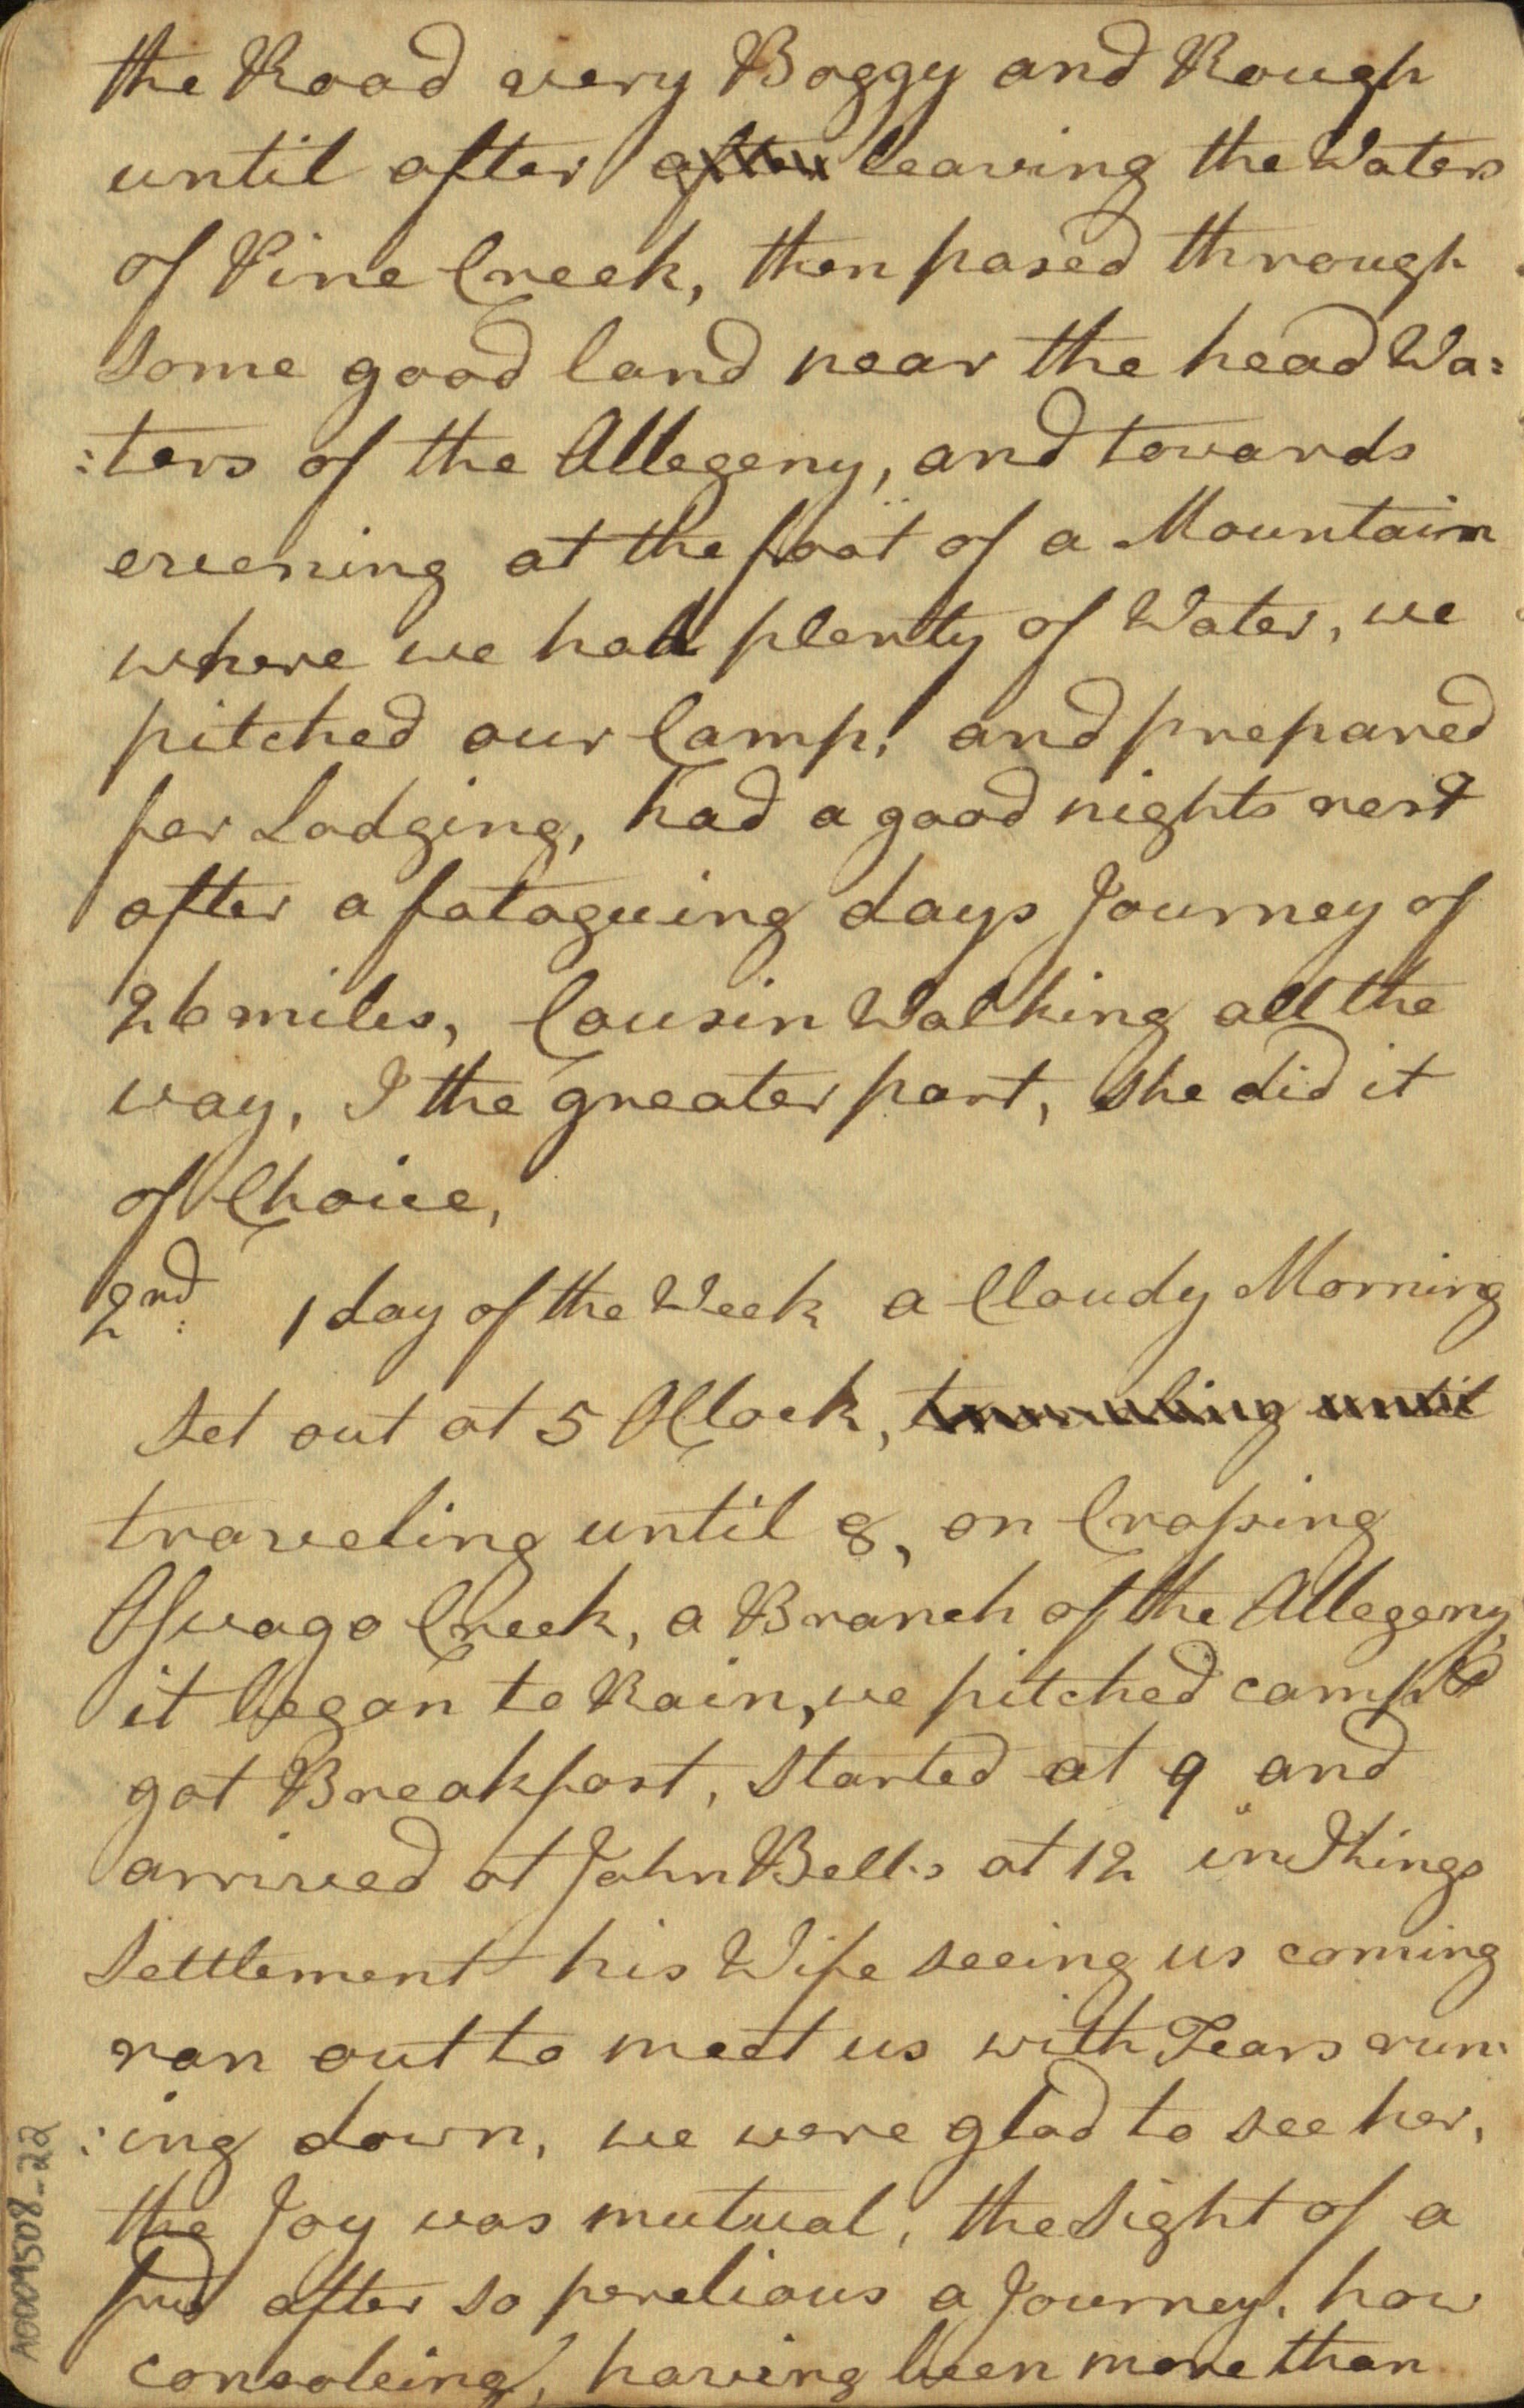 the Road very Boggy and Rough
until after after leaving the Waters
of Pine Creek, then pased through
some good land near the head Wa=
:ters of the Allegeny, and towards
evening at the foot of a Mountain
where we had plenty of Water, we
pitched our Camp, and prepared
for Lodging, had a good nights rest
after a fataguing days Journey of
26 miles, Cousin Walking all the
way, I the greater part, she did it
of Choice,
2nd: 1 day of the Week a Cloudy Morning
Set out at 5 OClock, traveling until
traveling until 8, on Crossing
Oswago Creek, a Branch of the Allegeny,
it began to Rain, we pitched camp &
got Breakfast, Started at 9 and
arrived at John Bells at 12 in Kings
Settlement his Wife seeing us coming
ran out to meet us with Tears run:
:ing down, we were glad to see her,
the Joy was mutual, the Sight of a
frd after so perelious a Journey, how
consoleing, having been more than
A0009508-22